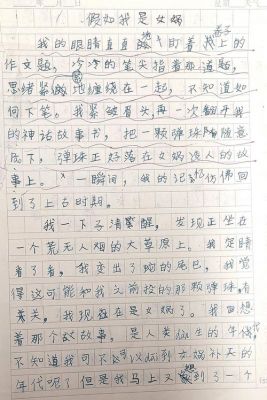 假如我是女娲
我的眼睛直直地盯着卷子上的
作文题，冷冷的笔尖指着那道题，
思绪紧紧地缠绕在一起，不知道如
何下笔。我紧皱眉头，再一次翻开我
的神话故事书，把一颗弹珠随意
底下，弹珠正好落在女娲造人的故
事上。一瞬间，我的记忆仿佛回
到了上古时期。
我一下子清醒，发现正坐在
一个荒无人烟的大草原上。我定睛
看了看，我变出了蛇的尾巴，我觉
得这可能和我之前投的那颗弹珠有
关，我现在在是女娲了。我回想
着那个故事，是人类诞生的年代，
不知道我可不可以到女娲补天的
年代呢？但是我马上又想到了一个